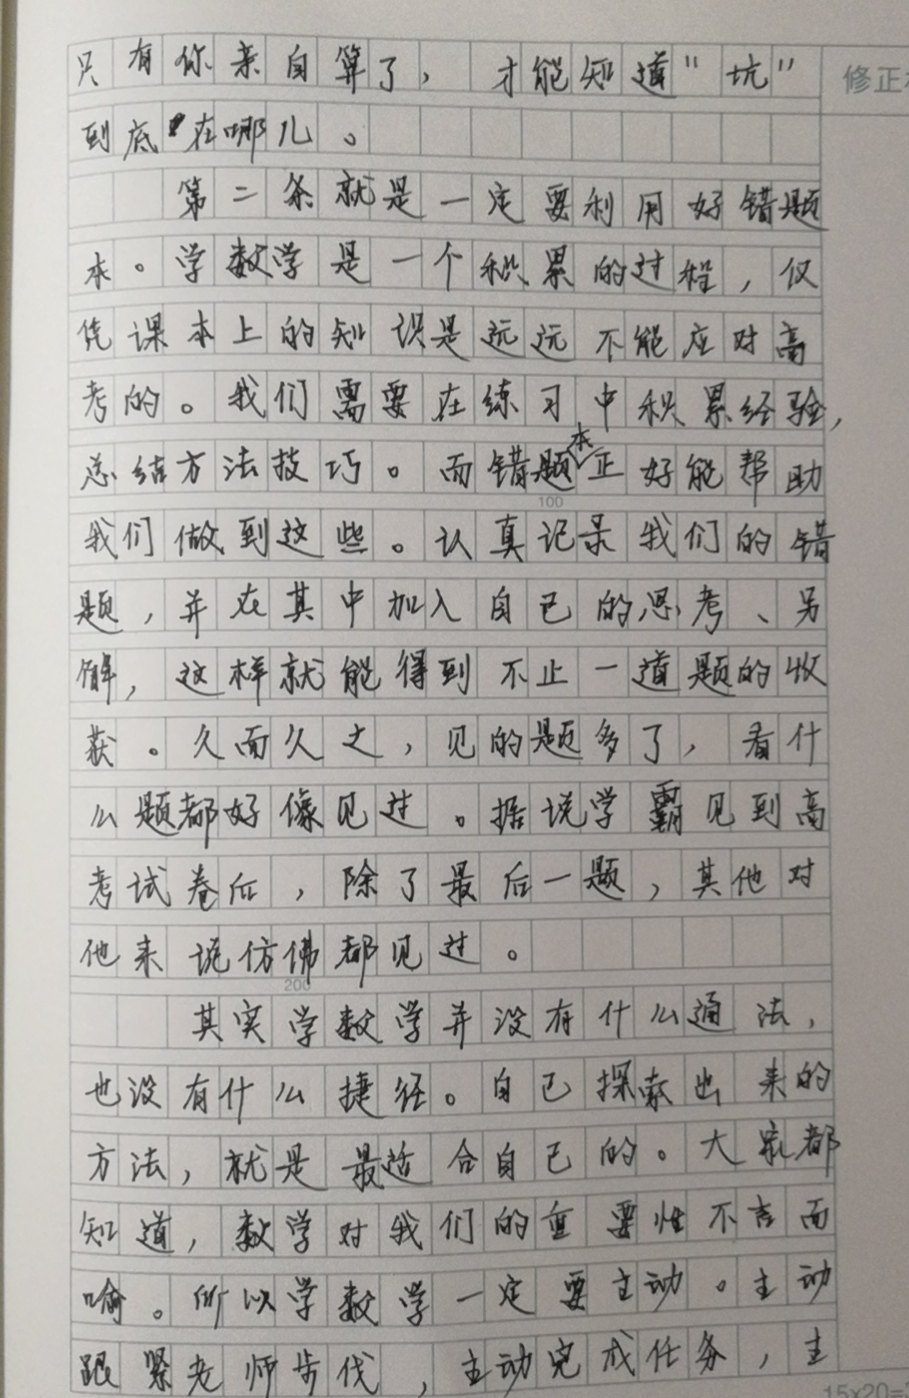 只有你亲自算了，才能知道"坑"
修正
到底在哪儿。
第二条就是一定要利用好错题
本。学数学是一个积累的过程，仅
凭课本上的知识是远远不能应对高
考的。我们需要在练习中积累经验，
总结方法技巧。而错题本正好能帮助
100
我们做到这些。认真记录我们的错
题，并在其中加入自己的思考、另
解，这样就能得到不止一道题的收
获。久而久之，见的题多了，看什
么题都好像见过。据说学霸见到高
考试卷后，除了最后一题，其他对
他来说仿佛都见过。
200
其实学数学并没有什么通法，
也没有什么捷径。自己探索出来的
方法，就是最适合自己的。大家都
知道，数学对我们的重要性不言而
喻。所以学数学一定要主动。主动
跟紧老师步伐，主动完成任务，主
15×20=